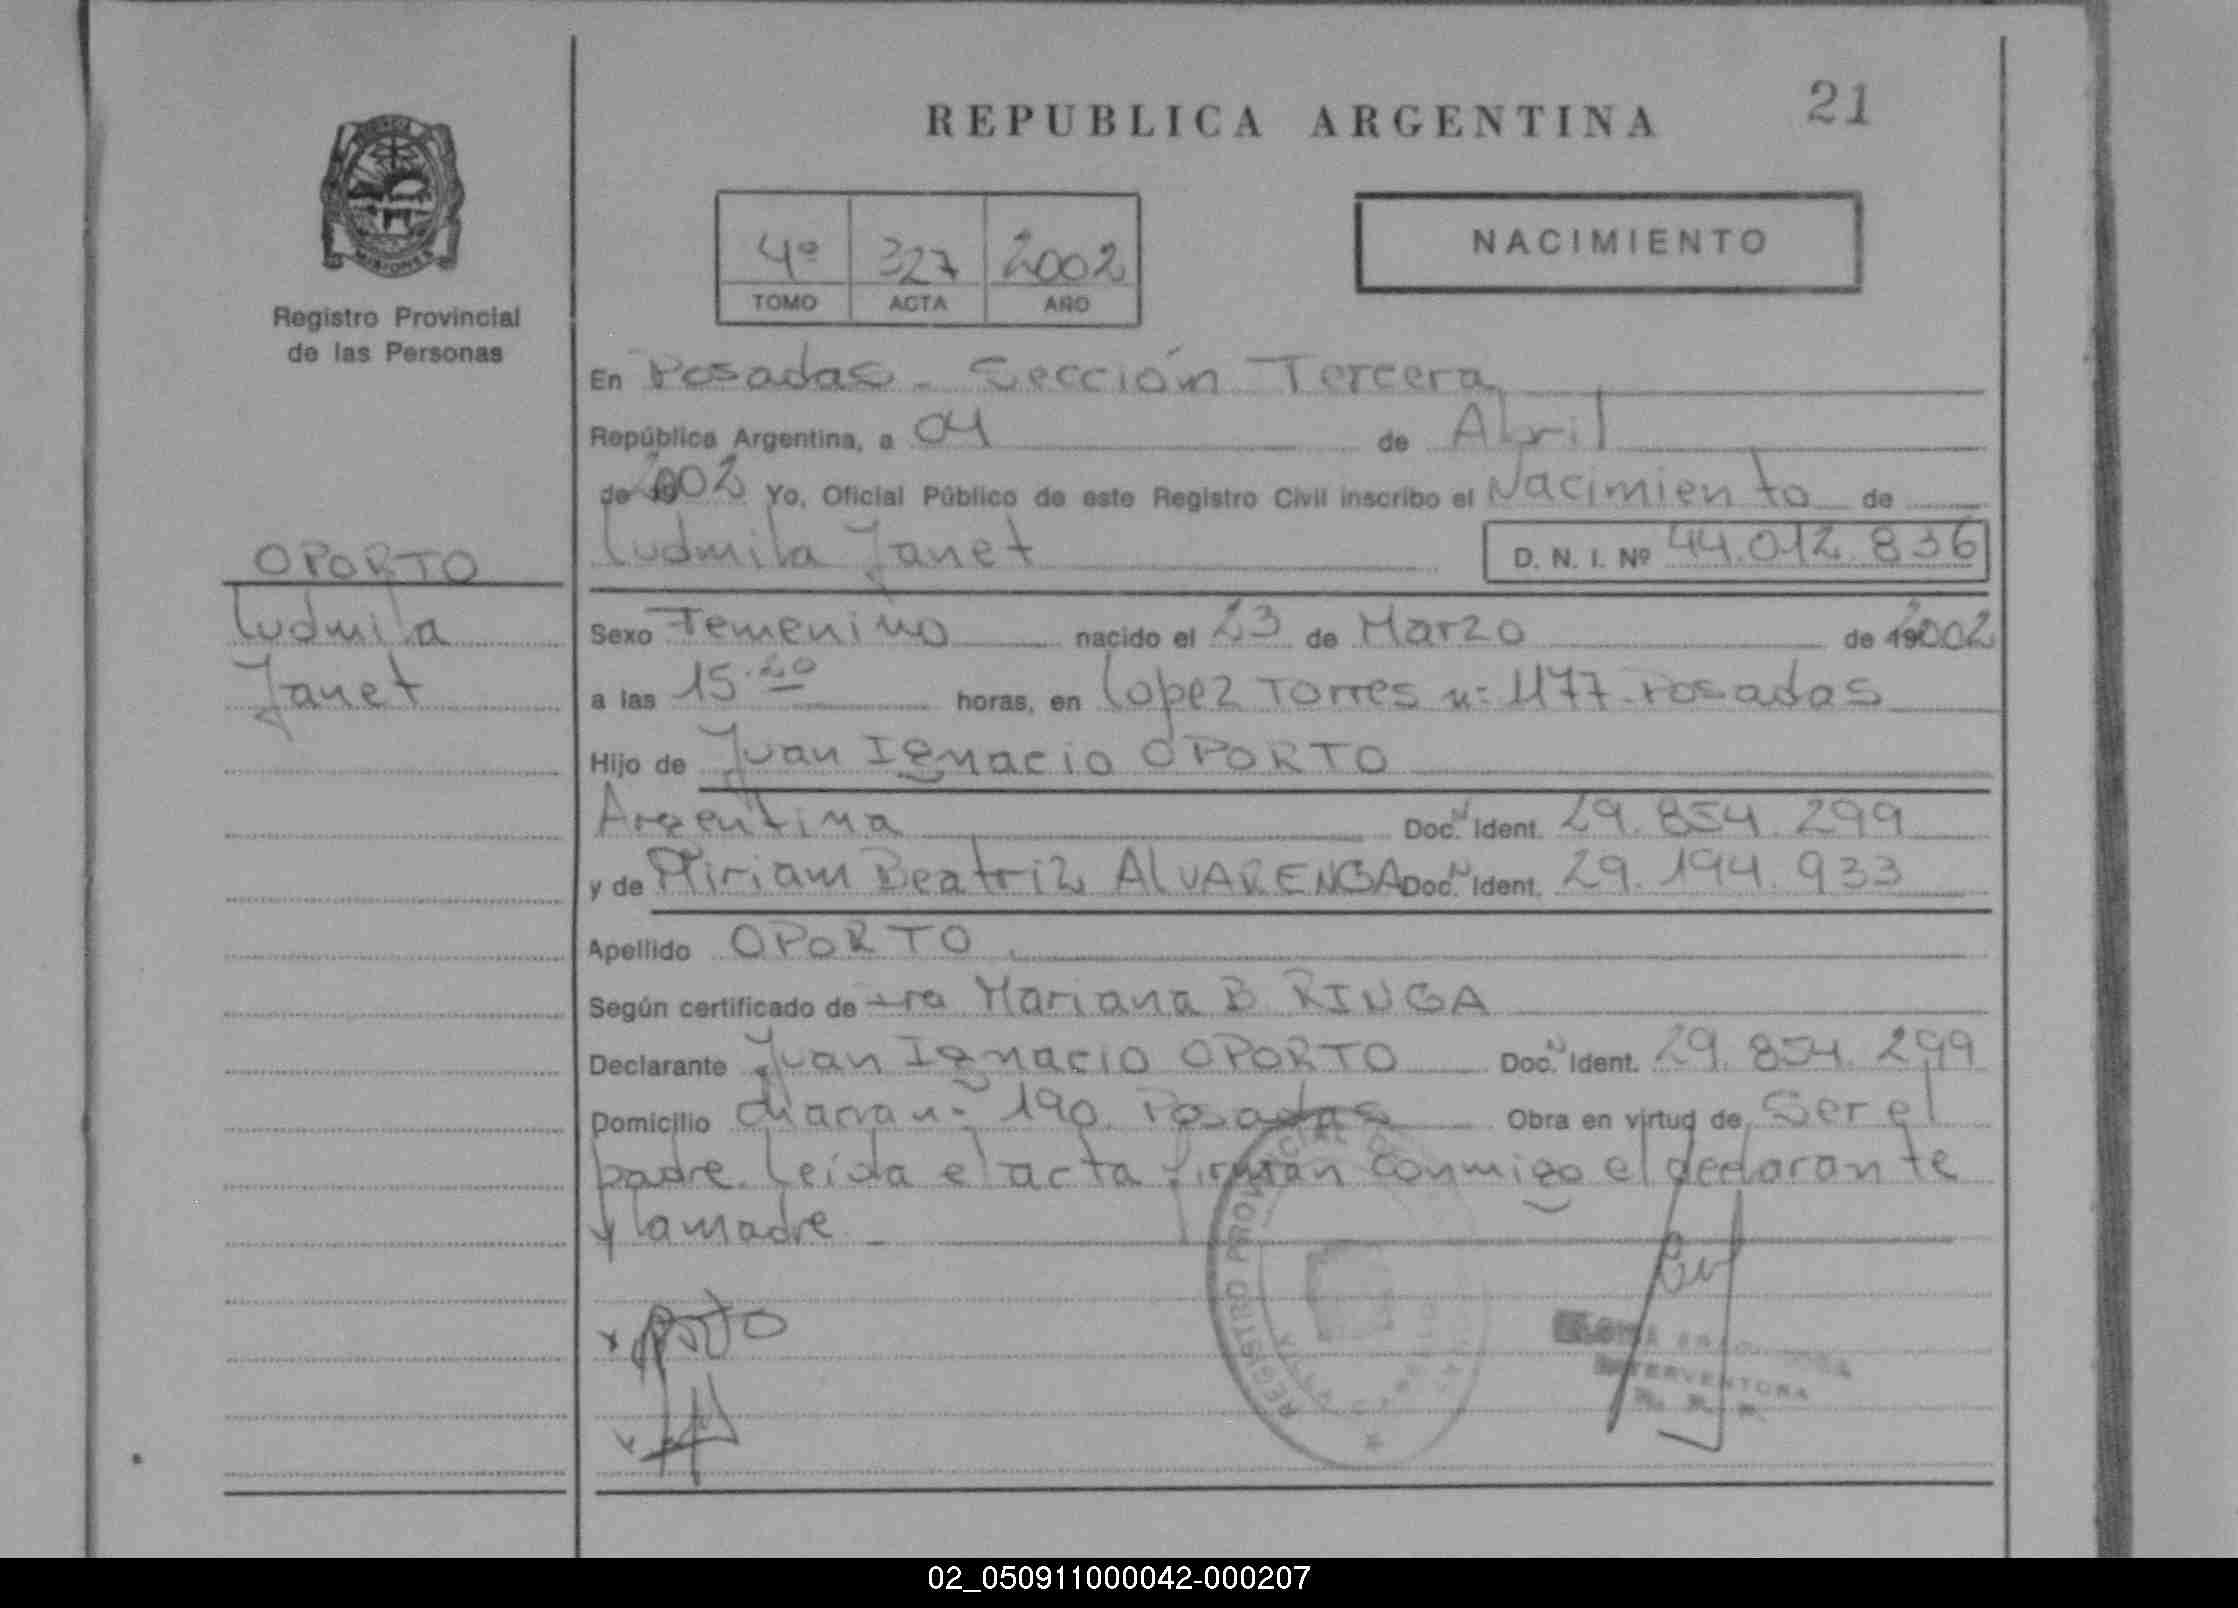 REPUBLICA ARGENTINA
21
MISIONES
Registro Provincial
de las Personas
4º 327 2002
TOMO ACTA AÑO
NACIMIENTO
En Posadas - Sección Tercera
República Argentina, a 04 de Abril
de 2002 Yo, Oficial Público de este Registro Civil inscribo el Nacimiento de
Ludmila Janet D. N. I. Nº 44.012.836
OPORTO
Ludmila
Janet
Sexo Femenino nacido el 23 de Marzo de 2002
a las 15.20 horas, en Lopez Torres nº 1177 - Posadas
Hijo de Juan Ignacio OPORTO
Argentina Doc. N Ident. 29.854.299
y de Miriam Beatriz ALVARENGA Doc. N Ident. 29.194.933
Apellido OPORTO
Según certificado de Mariana B RINGA
Declarante Juan Ignacio OPORTO Doc. N Ident. 29.854.299
Domicilio chacra nº 190. Posadas Obra en virtud de Ser el
padre. Leida el acta firman conmigo el declarante
y la madre
REGISTRO PROVINCIAL DE
INTERVENTORA
02_050911000042-000207